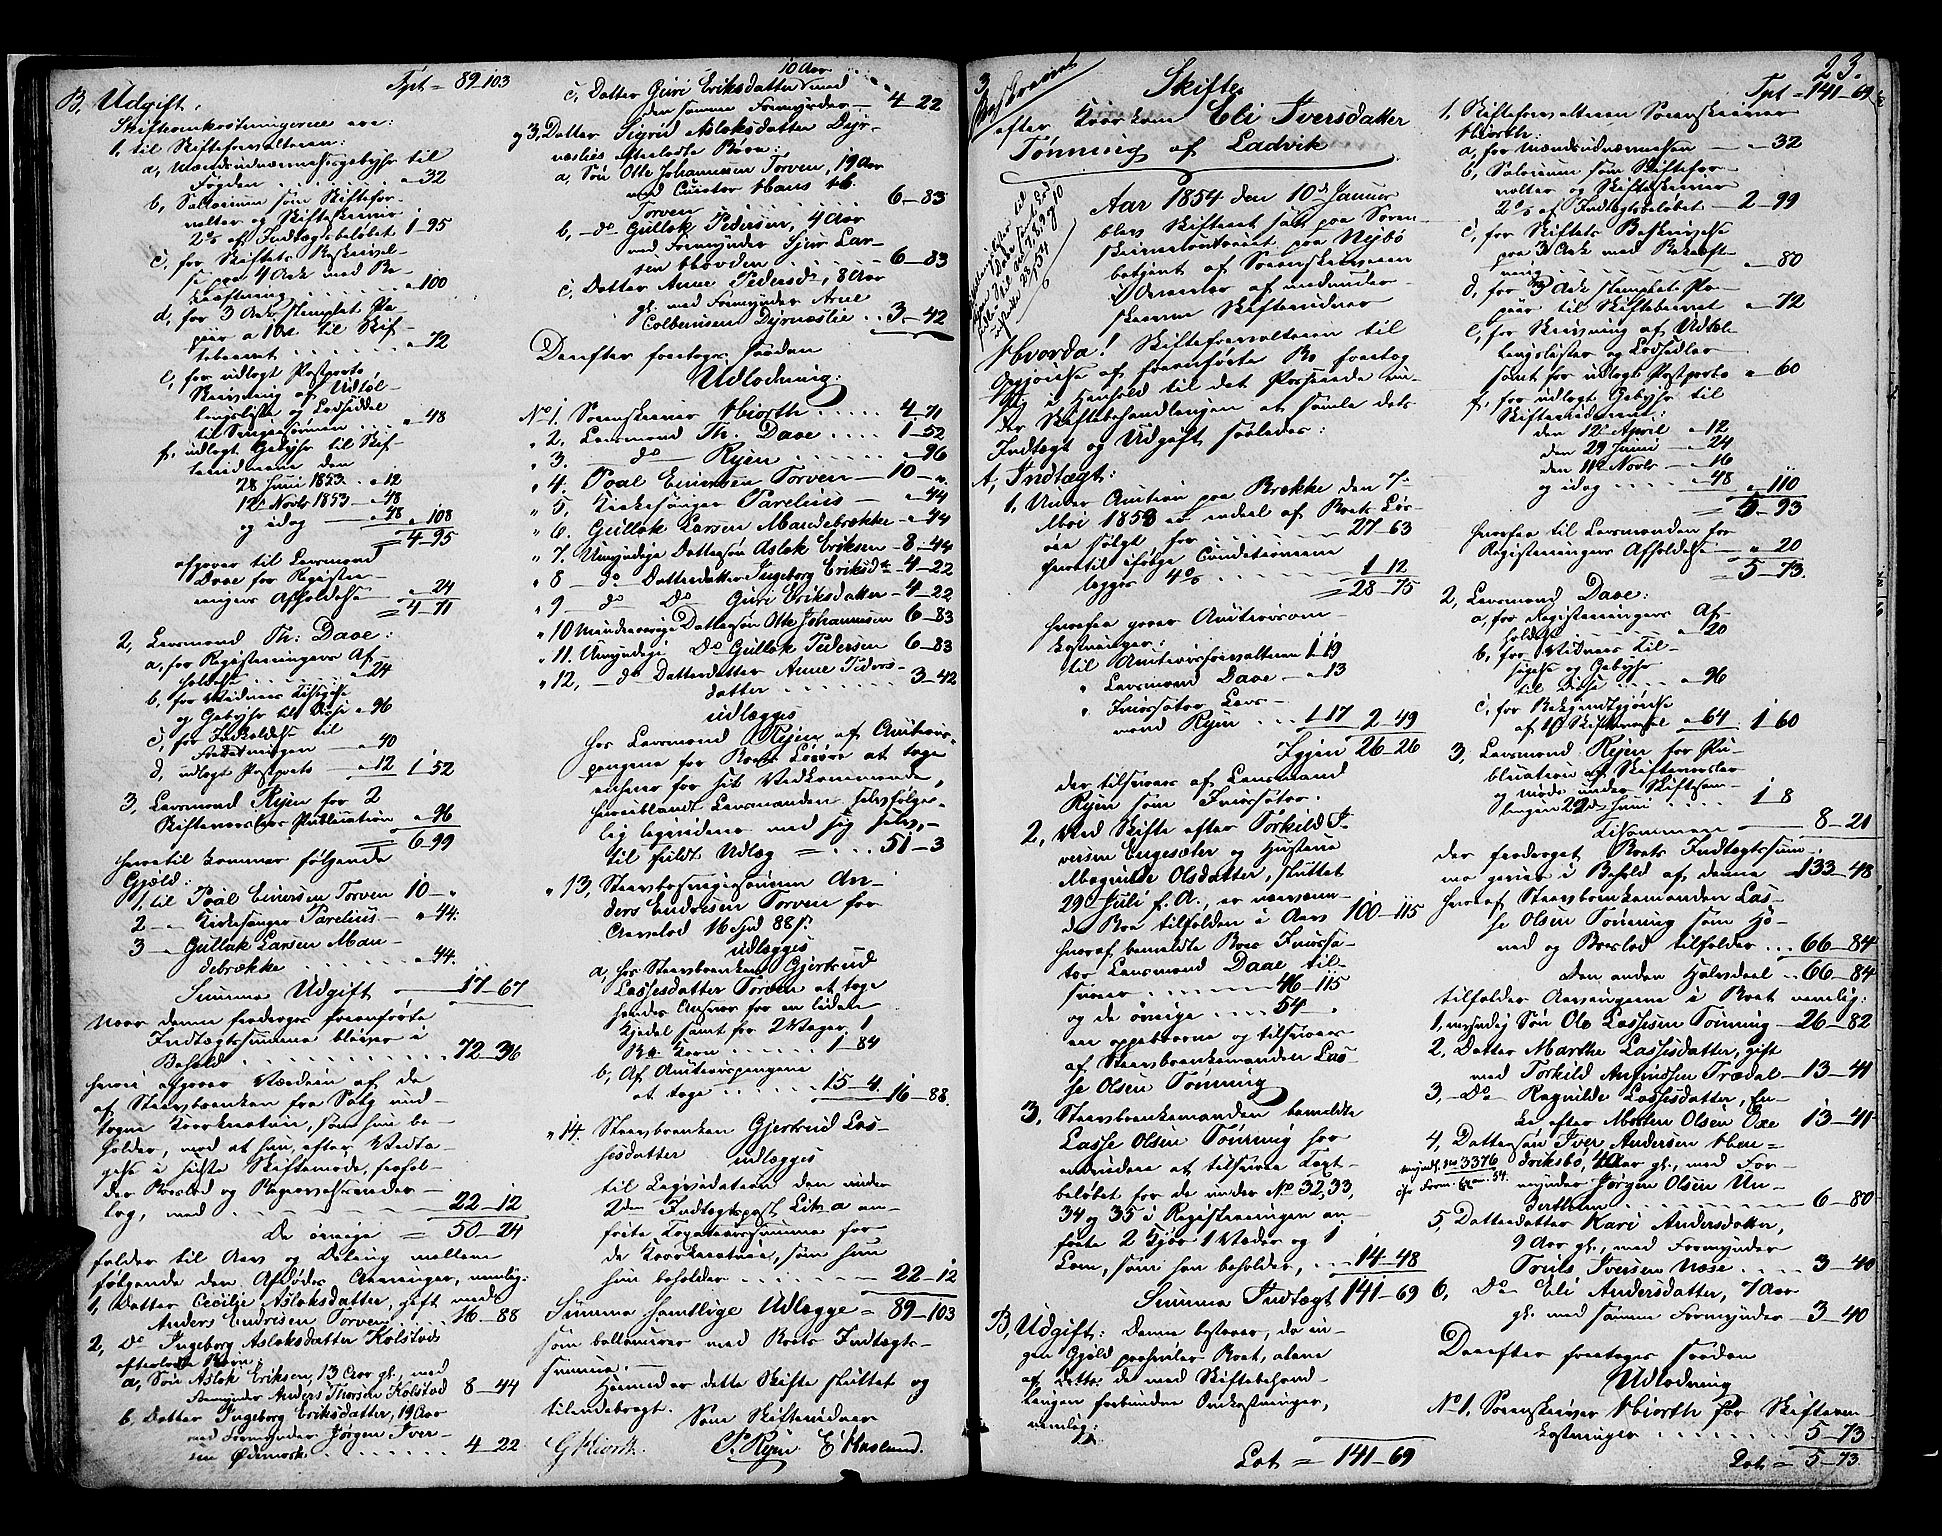 Tpt = 89_103
B, Udgift.
Skifteomkostningerne ere:
1, til Skifteforvalteren:
a, Mændsudnævnelsesgebyhr til
Fogden . . . . . . . " 32
b, Sallarium som Skiftefor-
valter og Skifteskriver
2% af Indtægtsbeløbet 1_95
c, for Skiftets Beskrivel-
se paa 4 Ark med Be-
kræftning . . . . . . " 100
d, for 3 Ark stemplet Pa-
piir a 1 Ort til Skif-
tebrevet . . . . . . . " 72
e, for udlagt Postporto,
Skrivning af Udtøl-
lingsliste og Lodseddel
til . . . " 48
f, udlagt Gebyhr til Skif-
tevidnerne den
28 Juni 1853 . " 12
12 Novbr 1853 _ " 48
og idag ___ " 48 " 108
= 4_95
afgaaer til Lensmand
Daae for Registre-
ringens Afholdelse _ " 24
= 4_71
2, Lensmand Th: Daae:
a, for Registreringens Af-
holdelse . . . . . . . " 24
b, for Vidners Tilsigelse
og Gebyhr til Disse " 96
c, for Indkaldelse til
Forretningen _ " 40
d, udlagt Postporto _ " 12 1_52
3, Lensmand Ryen for 2
Skiftevarslers Publication " 96
= 6_99
hvortil kommer følgende
Gjæld:
1, til Poal Einersen Torven 10_"
2 _ " Kirkesanger Parelius _ " 44.
3 _ " Gullak Larsen Man-
debrække . . . . . . . " 44.
Summa Udgift ___ 17_67
Naar denne fradrages fremførte
Indtægtssumma bliver i
Behold . . . . . . . . . . 72_36
hvori afgaaer Værdien af de
af Stervboenken fra Salg und-
tagne Kaarkreature, som hun be-
holder, mod at hun, efter Vedta-
gelse i sidste Skiftemøde, frafal-
der Boeslod og
lag, med . . . . . . 22_12
De øvrige = 50_24
falder til Arv og Deling mellem
følgende den Afdødes Arvinger, nemlig:
1, Datter Cecilie Aslaksdatter, gift med
Anders Endresen Torven . . . 16_88
2, Do Ingeborg Aslaksdatter Kolstads
efterladte Børn:
a, Søn Aslak Eriksen, 13 Aar gl., med
Formynder Anders Thorsen Kolstad 8_44
b, Datter Ingeborg Eriksdatter, 19 Aar
med Formynder Jørgen Iver-
sen Ødemark . . . . . . 4_22
10 Aar
c, Datter Guri Eriksdatter med
den samme Formynder _ 4_22
og 3, Datter Sigrid Aslaksdatter Dyr-
næslies efterladte Børn:
a, Søn Otte Johannessen Torven, 19 Aar
med Curator Hans
Torven . . . . . . 6_83
b, _ do Gullak Pedersen, 4 Aar
med Formynder Sjur Lar-
sen Hovden . . . . . . 6_83
c, Datter Anne Pedersd., 8 Aar
gl. med Formynder Arne
Colbeinsen Dyrnæslie . . 3_42
Derefter foretoges saadan
Udlodning:
No 1. Sorenskriver Hiorth . . . . . 4_71
" 2, Lensmand Th. Daae . . . . 1_52
" 3. _ do _ Ryen . . . . . . " 96
" 4. Poal Einersen Torven _ 10_"
" 5, Kirkesanger Parelius _ " 44
" 6. Gullak Larsen Mandebrække _ " 44
" 7. Umyndige Dattersøn Aslak Eriksen _ 8_44
" 8 _ do Datterdatter Ingeborg Eriksdtr 4_22
" 9 _ do Do Guri Eriksdatter _ 4_22
" 10 Mindreaarige Dattersøn Otte Johannessen 6_83
" 11. Umyndige Do Gullak Pedersen 6_83
" 12, _ do Datterdatter Anne Peders-
datter . . . . . . . . 3_42
udlægges
hos Lensmand Ryen af Auctions-
pengene for Boets Løsøre at tage
enhver for sit Vedkommende,
hvoriblandt Lensmanden selvfølge-
lig legviderer med sig selv,_
til fuldt Udlæg = . . . 51_3
" 13, Stervboesvigersønnen An-
ders Endresen Torven for
Arvelod 16 Spd 88 s.
udlægges
a, hos Stervboenken Gjertrud
Lassesdatter Torven at tage
hendes Ansvar for en liden
Kjedel samt for 2 Vager 1
Korn . . . . . . 1_84
b, Af Auctionspengene
at tage . . . . . . 15_4. 16_88.
" 14. Stervboenken Gjertrud Las-
sesdatter udlægges
til Leqvidation den under
2den Indtægtspost Litr. a an-
førte Taxationssumma for-
de Kaarkreature, som hun
hun beholder . . . . . . 22_12
Summa samtlige Udlægge = 89_103
som ballancerer med Boets Indtægts-
summa. _
Hermed er dette Skifte sluttet og
tilendebragt. Som Skiftevidner
G Hiorth. S. Ryen E. Haslund.
23.
3,
Beskreven
Skifte
efter Kaarkone Eli Iversdatter
Tønning af Ladvik
Aar 1854 den 10d Januar
blev Skifteret sat paa Soren-
skrivercontoiret paa Nybø
betjent af Sorenskriveren
i Overvær af medunder-
skrevne Skiftevidner
Hvorda! Skifteforvalteren til
Opgjørelse af foranførte Bo foretog
sig i Henhold til det Passerede un-
der Skiftebehandlingen at samle dets
Indtægt og Udgift saaledes:
A, Indtægt:
1, Under Auction paa Brække den 7
Mai 1853 er endeel af Boets Løs-
øre solgt for . . . . . . . 27_63
hvortil ifølge Conditionerne
lægges 4% . . . . . . . 1_12
= 28_75
herfra gaaer Auctionsom-
kostninger:
til Auctionsforvalteren 1_19
" Lensmand Daae _ " 13
" Incassator Lens-
mand Ryen . . . 1_17 2_49
Igjen 26_26
der tilsvares af Lensmand
Ryen som Incassator.
2, Ved Skifte efter Torkild I-
versen Engesæter og Hustrue
Magnilde Olsdatter, sluttet
29 Juli f. A., er nærværen-
de Boe tilfalden i Arv 100_115
hvoraf bemeldte Boes Incassa-
tor Lensmand Daae til-
svarer . . . . . . 46_115
og de øvrige . . . . 54_"
ere oppebaarne og tilsvares
af Stervboenkemanden Las-
se Olsen Tønning
3, Stervboenkemanden bemeldte
Lasse Olsen Tønning har
endvidere at tilsvare Taxt-
beløbet for de under No 32, 33,
34 og 35 i Registreringen an-
førte 2 Kjør 1 Væder og 1
Lam, som han beholder, . . . 14_48
Summa Indtægt 141_69
B, Udgift: Denne bestaaer, da in-
gen Gjæld paahviler Boet, alene
af dette: de med Skiftebehand-
lingen forbundne Omkostninger,
nemlig:
Lat = 141_69
Tpt = 141_69
1, Skifteforvalteren Sorenskriver
Hiorth:
a, for Mændsudnævnelsen _ " 32
b, Salarium som Skiftefor-
valter og Skifteskriver
2% af Indtægtsbeløbet _ 2_99
c, for Skiftets Beskrivelse
paa 3 Ark med Bekræft-
ning . . . . . . . . . " 80
d, for 3 Ark stemplet Pa-
piir til Skiftebrevet " 72
e, for Skrivning af Udtøl-
lingslister og Lodsedler
samt for udlagt Postporto " 60
f, for udlagt Gebyhr til
Skiftevidnerne:
den 12 April " 12
den 29 Juni _ " 24
den 11 Novbr _ " 16
og idag . . . . " 48 " 110
= 5_93
herfra til Lensmanden for
Registreringens Afholdelse _ " 20
= 5_73.
2, Lensmand Daae:
a, for Registreringens Af-
holdelse " 20
b, for Vidners Til-
sigelse og Gebyhr
til Disse . . . . " 96
c, for Bekjendtgjørelse
af " 64. 1_60
3, Lensmand Ryen for Pu-
blication af Skiftevarsler
og Møde under Skiftesam-
lingen 29d Juni . . . . 1_8
Tilsammen ___ 8_21
der fradraget Boets Indtægtssum-
ma giver i Behold af denne _ 133_48
hvoraf Stervboenkemanden Las-
se Olsen Tønning som Ho-
ved og Boeslod tilfalder . . . 66_84
Den anden Halvdeel . . 66_84
tilfalder Arvingerne i Boet nemlig:
1, myndig Søn Ole Lassesen Tønning _ 26_82
2, Datter Marthe Lassesdatter, gift
med Torkild Anfindsen Trædal _ 13_41
3, _ Do _ Ragnilde Lassesdatter, En-
ke efter Morten Olsen Oxe 13_41
4, Dattersøn Iver Andersen Hen-
driksbø, Aar gl., med For-
mynder Jørgen Olsen Un-
dertheim . . . . . . . . 6_80
5, Datterdatter Kari Andersdatter,
9 Aar gl., med Formynder
Truls Iversen Næse . . . . 3_40
6, Do Eli Andersdatter, 7 Aar
gl. med samme Formynder _ 3_40
Derefter foretoges saadan
Udlodning
No 1, Sorenskriver Hiorth for Skifteom-
kostninger . . . . . . . 5_73
Lat = 5_73.